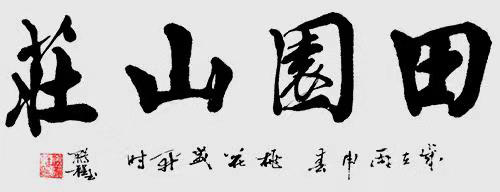 田園山莊
歲在丙申春桃花盛开时